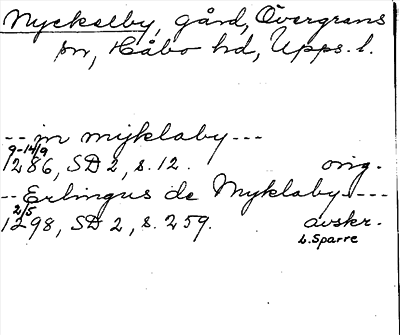 Nyckelby, gård, Övergrans
sn, Håbo hd, Upps. l.
-- in myklaby ---
9-14/9
1286, SD 2, s. 12. orig.
-- Erlingus de Myklaby ---
2/5
1298, SD 2, s. 259. avskr.
L. Sparre